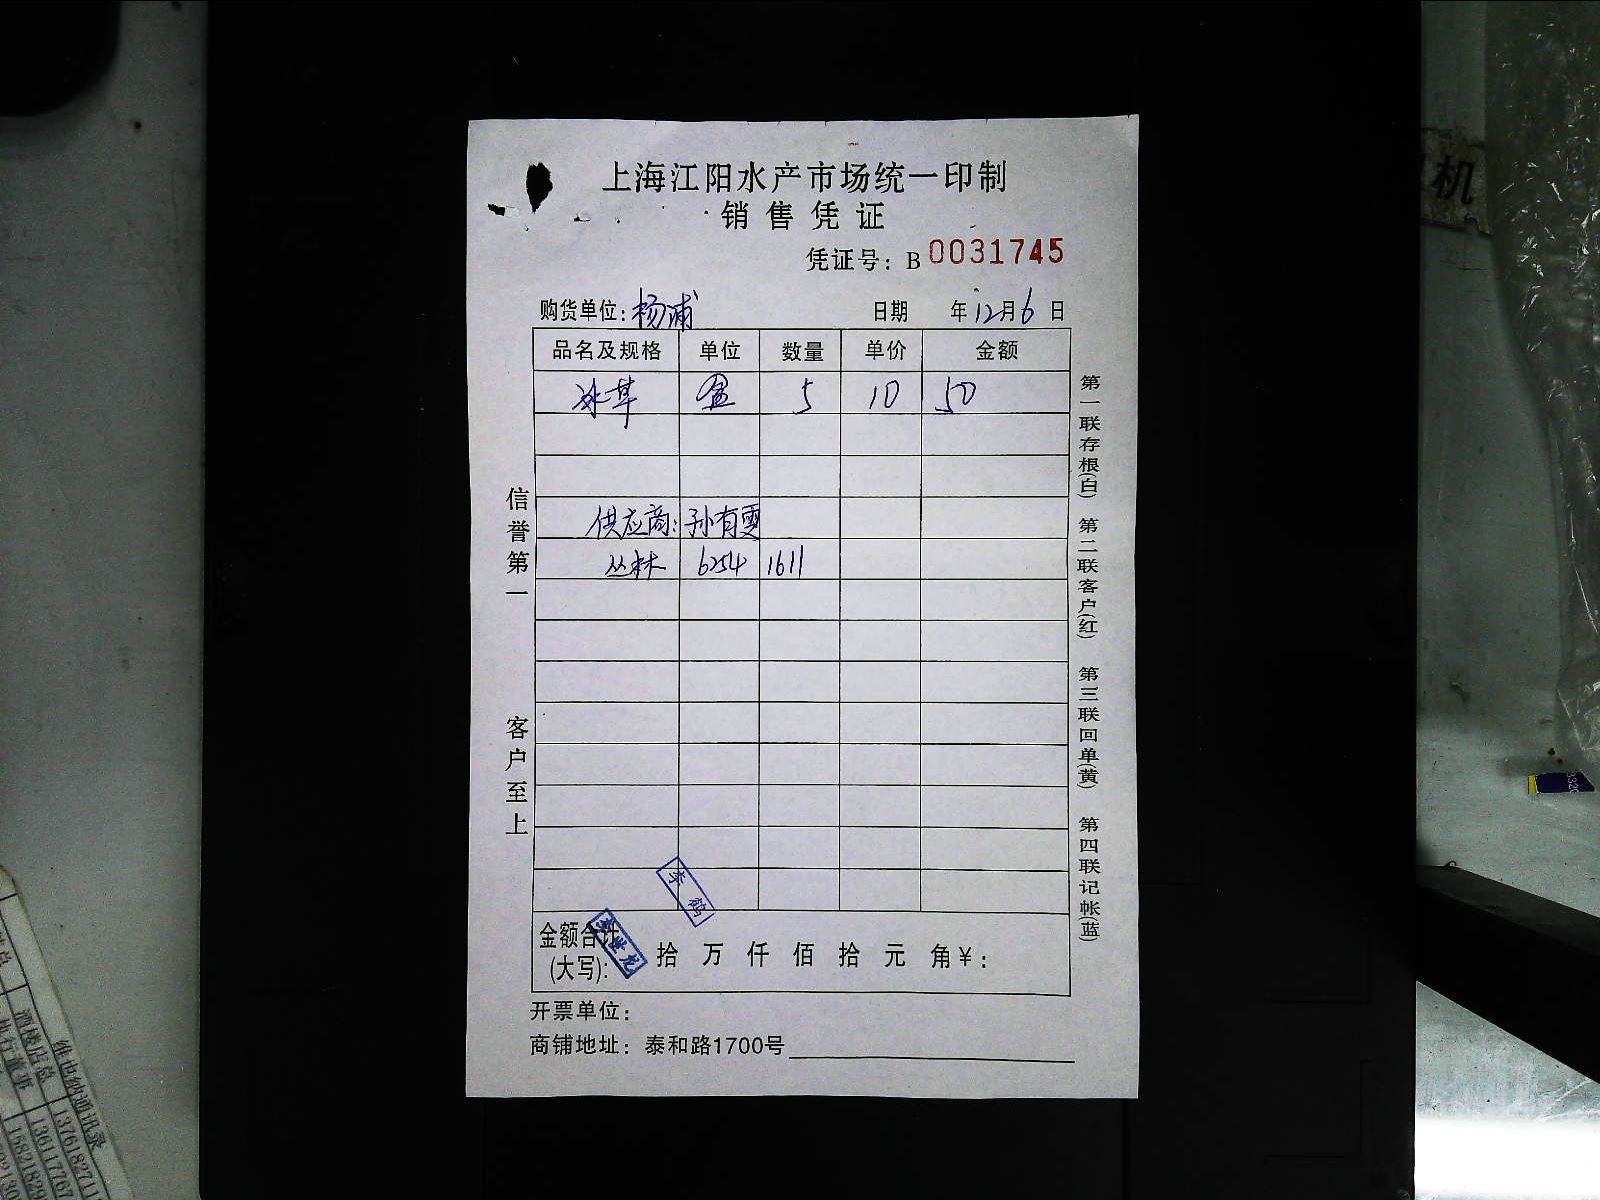 上海江阳水产市场统一印制
销售凭证
凭证号：B 0031745
购货单位：杨浦 日期 年12月6日
品名及规格 单位 数量 单价 金额
冰草 盒 5 10 50
供应商：孙有雯
丛林 6254 1611
信誉第一 客户至上
第一联存根(白) 第二联客户(红) 第三联回单(黄) 第四联记帐(蓝)
李鹤
金额合计
(大写)： 拾 万 仟 佰 拾 元 角 ¥：
开票单位：
商铺地址：泰和路1700号
机
维也纳通讯录
酒楼店总
执行董事